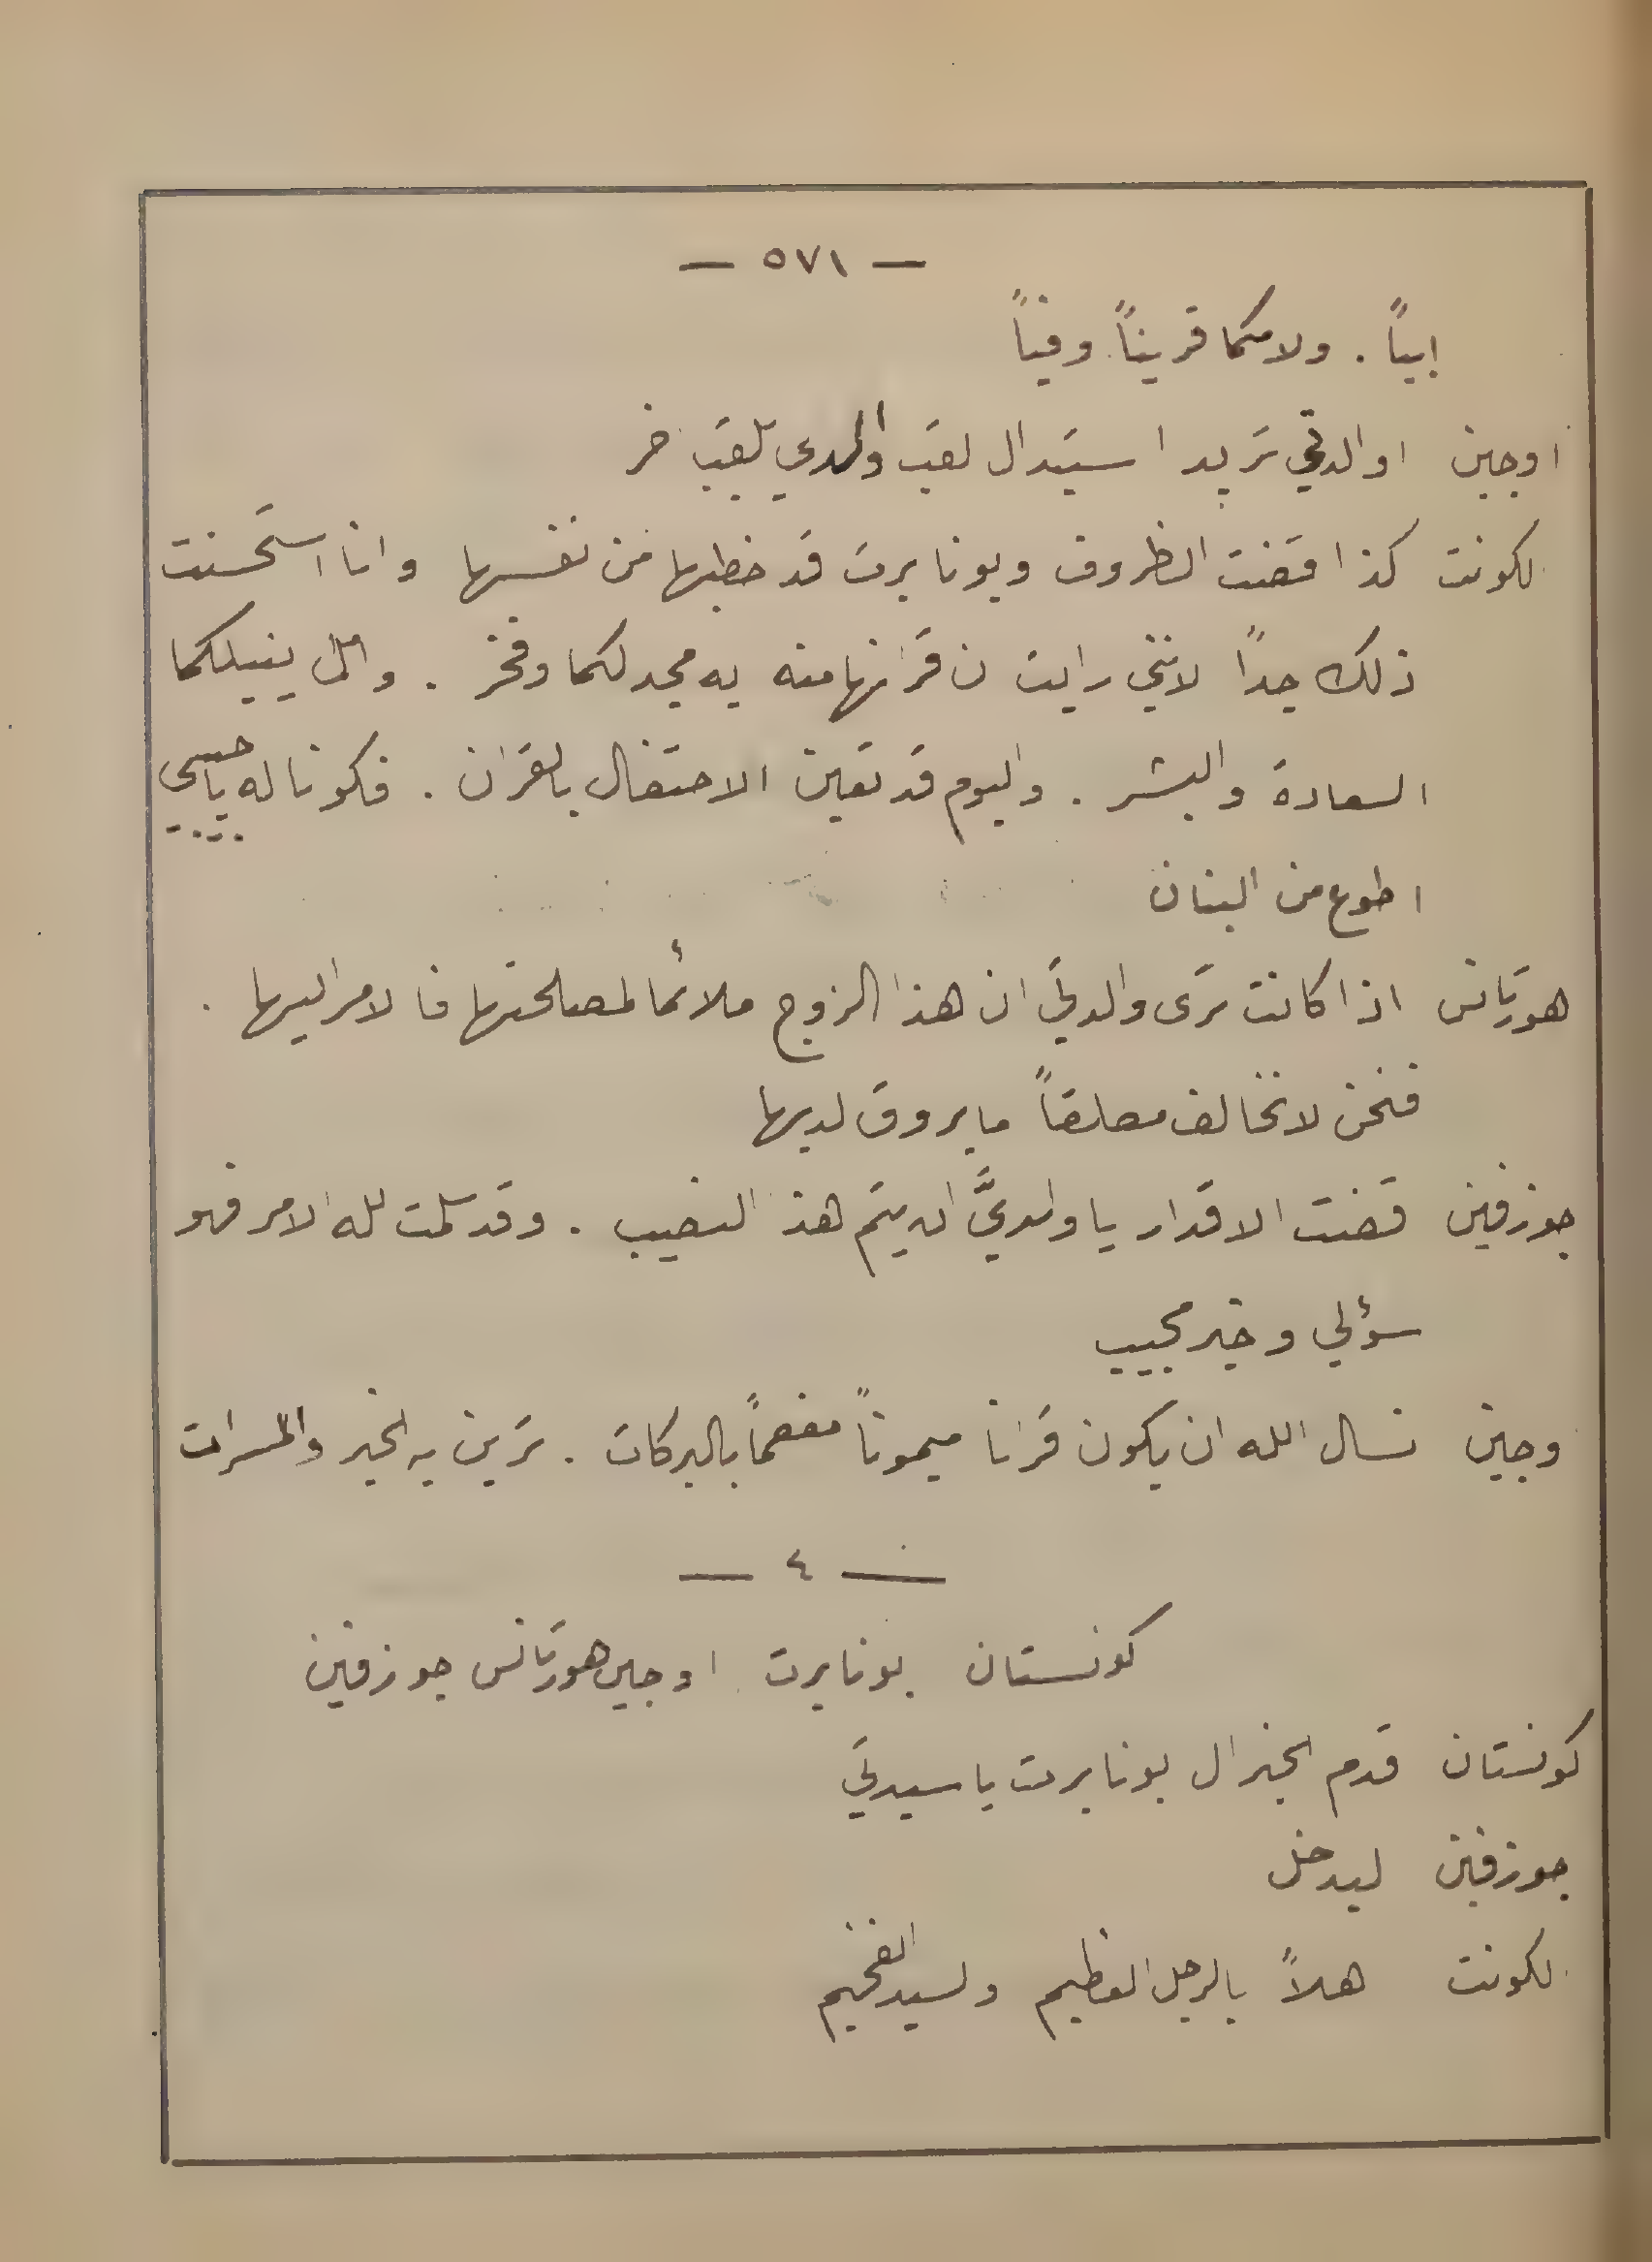 — ٥٧١ —
ابياً . ولامكما قريناً وفياً
اوجين اوالدتي تريد استبدال لقب والدي بلقب اخر
الكونت كذا قضت الظروف وبونابرت قد خطبها من نفسها وانا استحسنت
ذلك جداً لانني رايت ان قرانها منه به مجد لكما وفخر . وامل ينيلكما
السعادة والبشر . واليوم قد تعين الاحتفال بالقران . فكونا له يا حبيبي
اطوع من البنان
هورتانس اذا كانت ترى والدتي ان هذا الزوج ملائما لمصلحتها فالامر اليها .
فنحن لا نخالف مطلقاً ما يروق لديها
جوزفين قضت الاقدار يا ولديَّ ان يتم هذا النصيب . وقد سلمت لله الامر فهو
سؤلي وخير مجيب
اوجين نسال الله ان يكون قرانا ميموناً مفعماً بالبركات . ترين به الخير والمسرات
— ٤ —
كونستان بونابرت اوجين هورتانس جوزفين
كونستان قدم الجنرال بونابرت يا سيدتي
جوزفين ليدخل
الكونت اهلاً بالرجل العظيم والسيد الفخيم